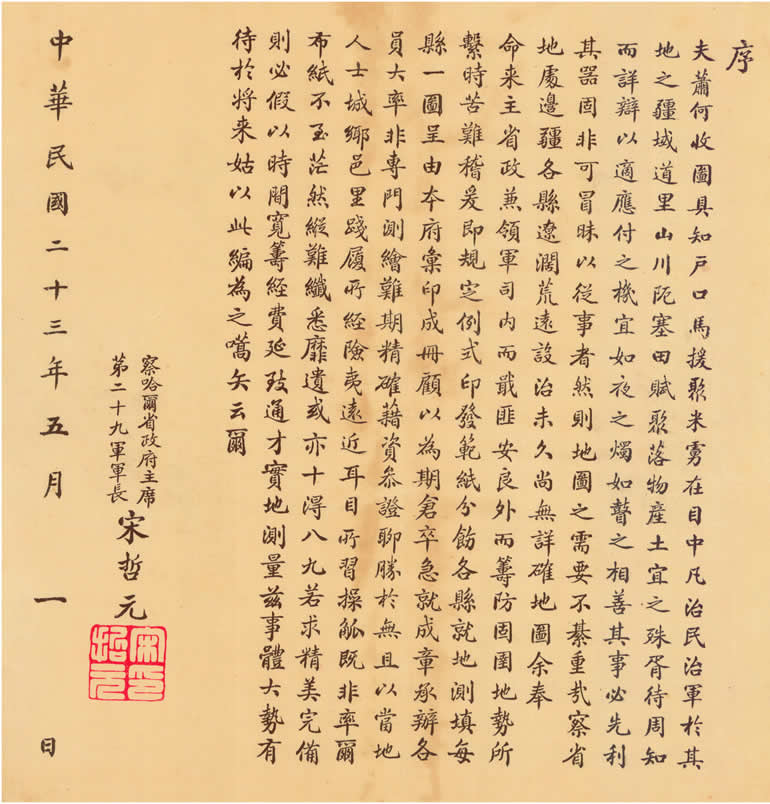 序
夫蕭何收圖具知戶口馬援聚米虜在目中凡治民治軍於其
地之疆域道里山川阨塞田賦聚落物產土宜之殊胥待周知
而詳辯以適應付之機宜如夜之燭如瞽之相善其事必先利
其器固非可冒昧以從事者然則地圖之需要不綦重哉察省
地處邊疆各縣遼濶荒遠設治未久尚無詳確地圖余奉
命来主省政兼領軍司内而戢匪安良外而籌防固圉地勢所
繫時苦難稽爰即規定例式印發範紙分飭各縣就地測填每
縣一圖呈由本府彙印成冊顧以為期倉卒急就成章承辦各
員大率非專門測繪難期精確藉資叅證聊勝於無且以當地
人士城鄉邑里踐履所經險夷遠近耳目所習操觚既非率爾
布紙不至茫然縱難纖悉靡遺或亦十得八九若求精美完備
則必假以時間寛籌經費延致通才實地測量茲事體大勢有
待於将来姑以此編為之嚆矢云爾
察哈爾省政府主席
第二十九軍軍長
宋哲元
宋哲元印
中華民國二十三年五月一日